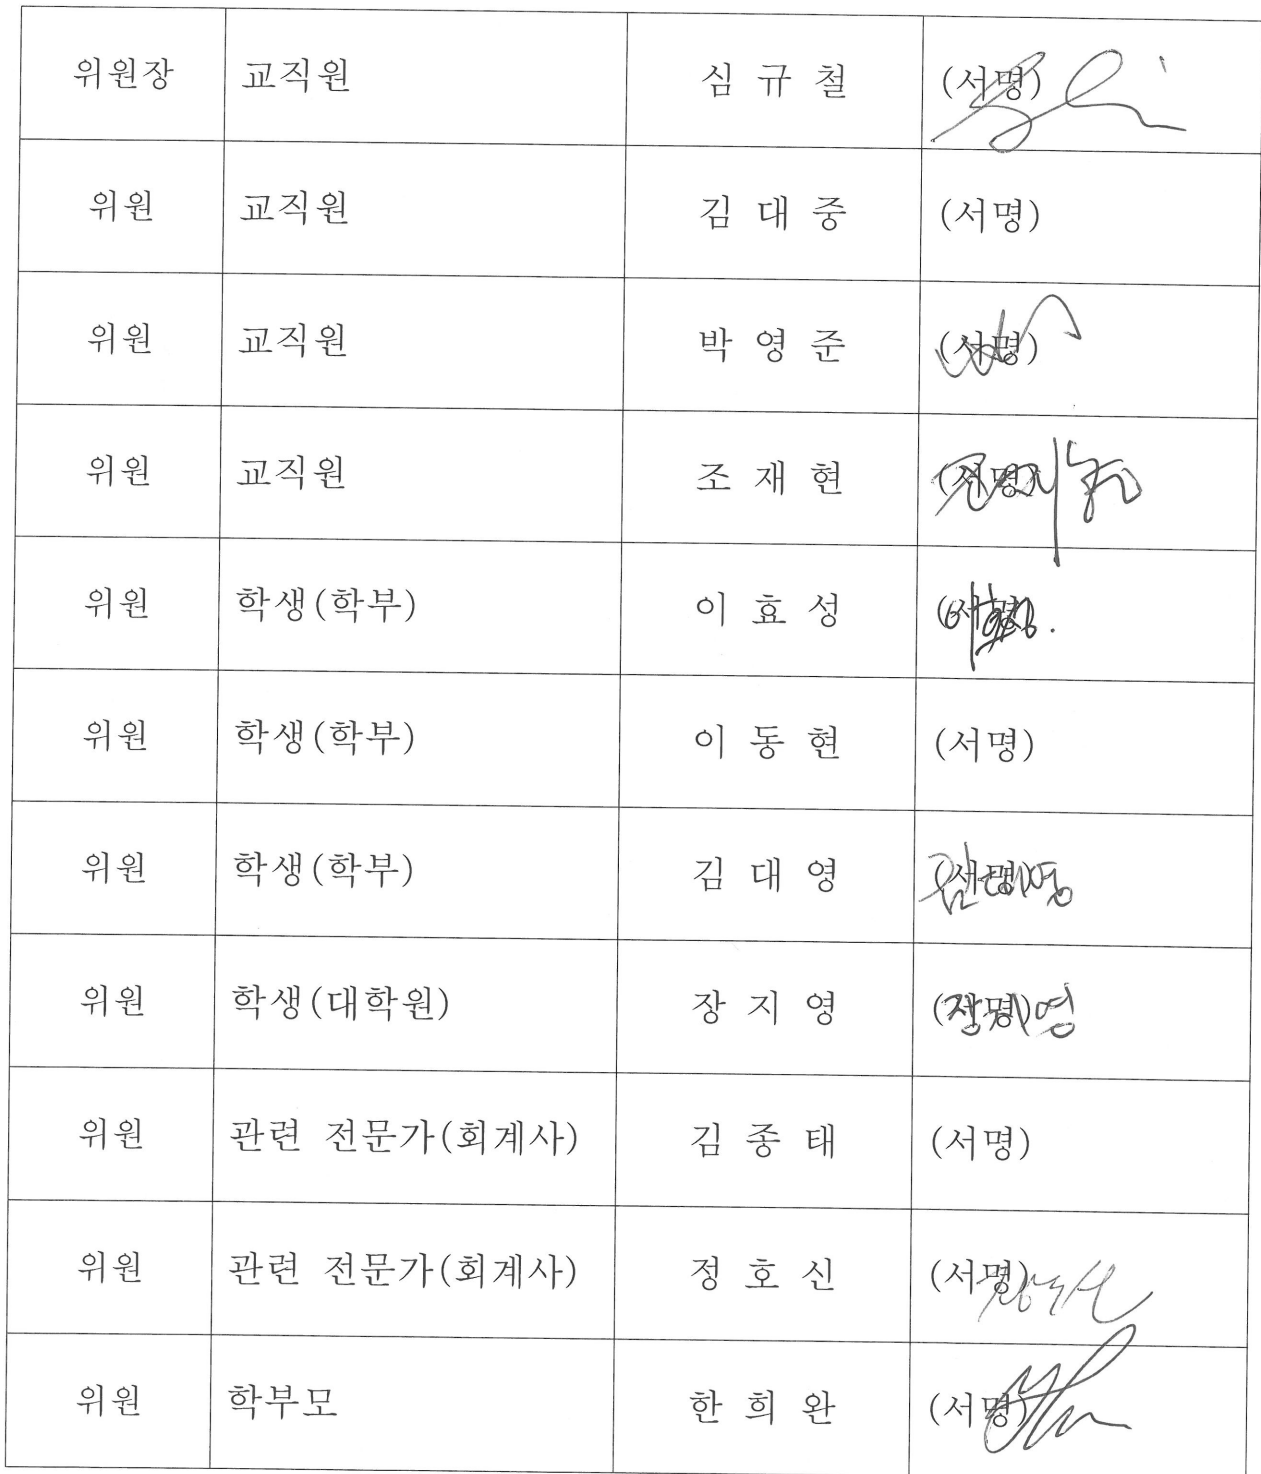 위원장 교직원 심 규 철 (서명)
위원 교직원 김 대 중 (서명)
위원 교직원 박 영 준 (서명)
위원 교직원 조 재 현 (서명)
위원 학생(학부) 이 효 성 (서명)
위원 학생(학부) 이 동 현 (서명)
위원 학생(학부) 김 대 영 (서명)
위원 학생(대학원) 장 지 영 (서명)
위원 관련 전문가(회계사) 김 종 태 (서명)
위원 관련 전문가(회계사) 정 호 신 (서명)
위원 학부모 한 희 완 (서명)